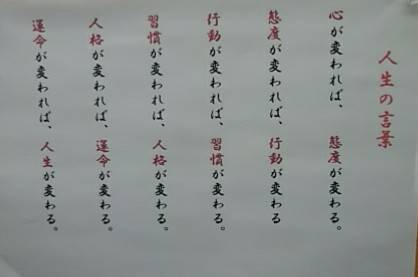 人生の言葉
心が変われば、態度が変わる。
態度が変われば、行動が変わる
行動が変われば、習慣が変わる。
習慣が変われば、人格が変わる。
人格が変われば、運命が変わる。
運命が変われば、人生が変わる。